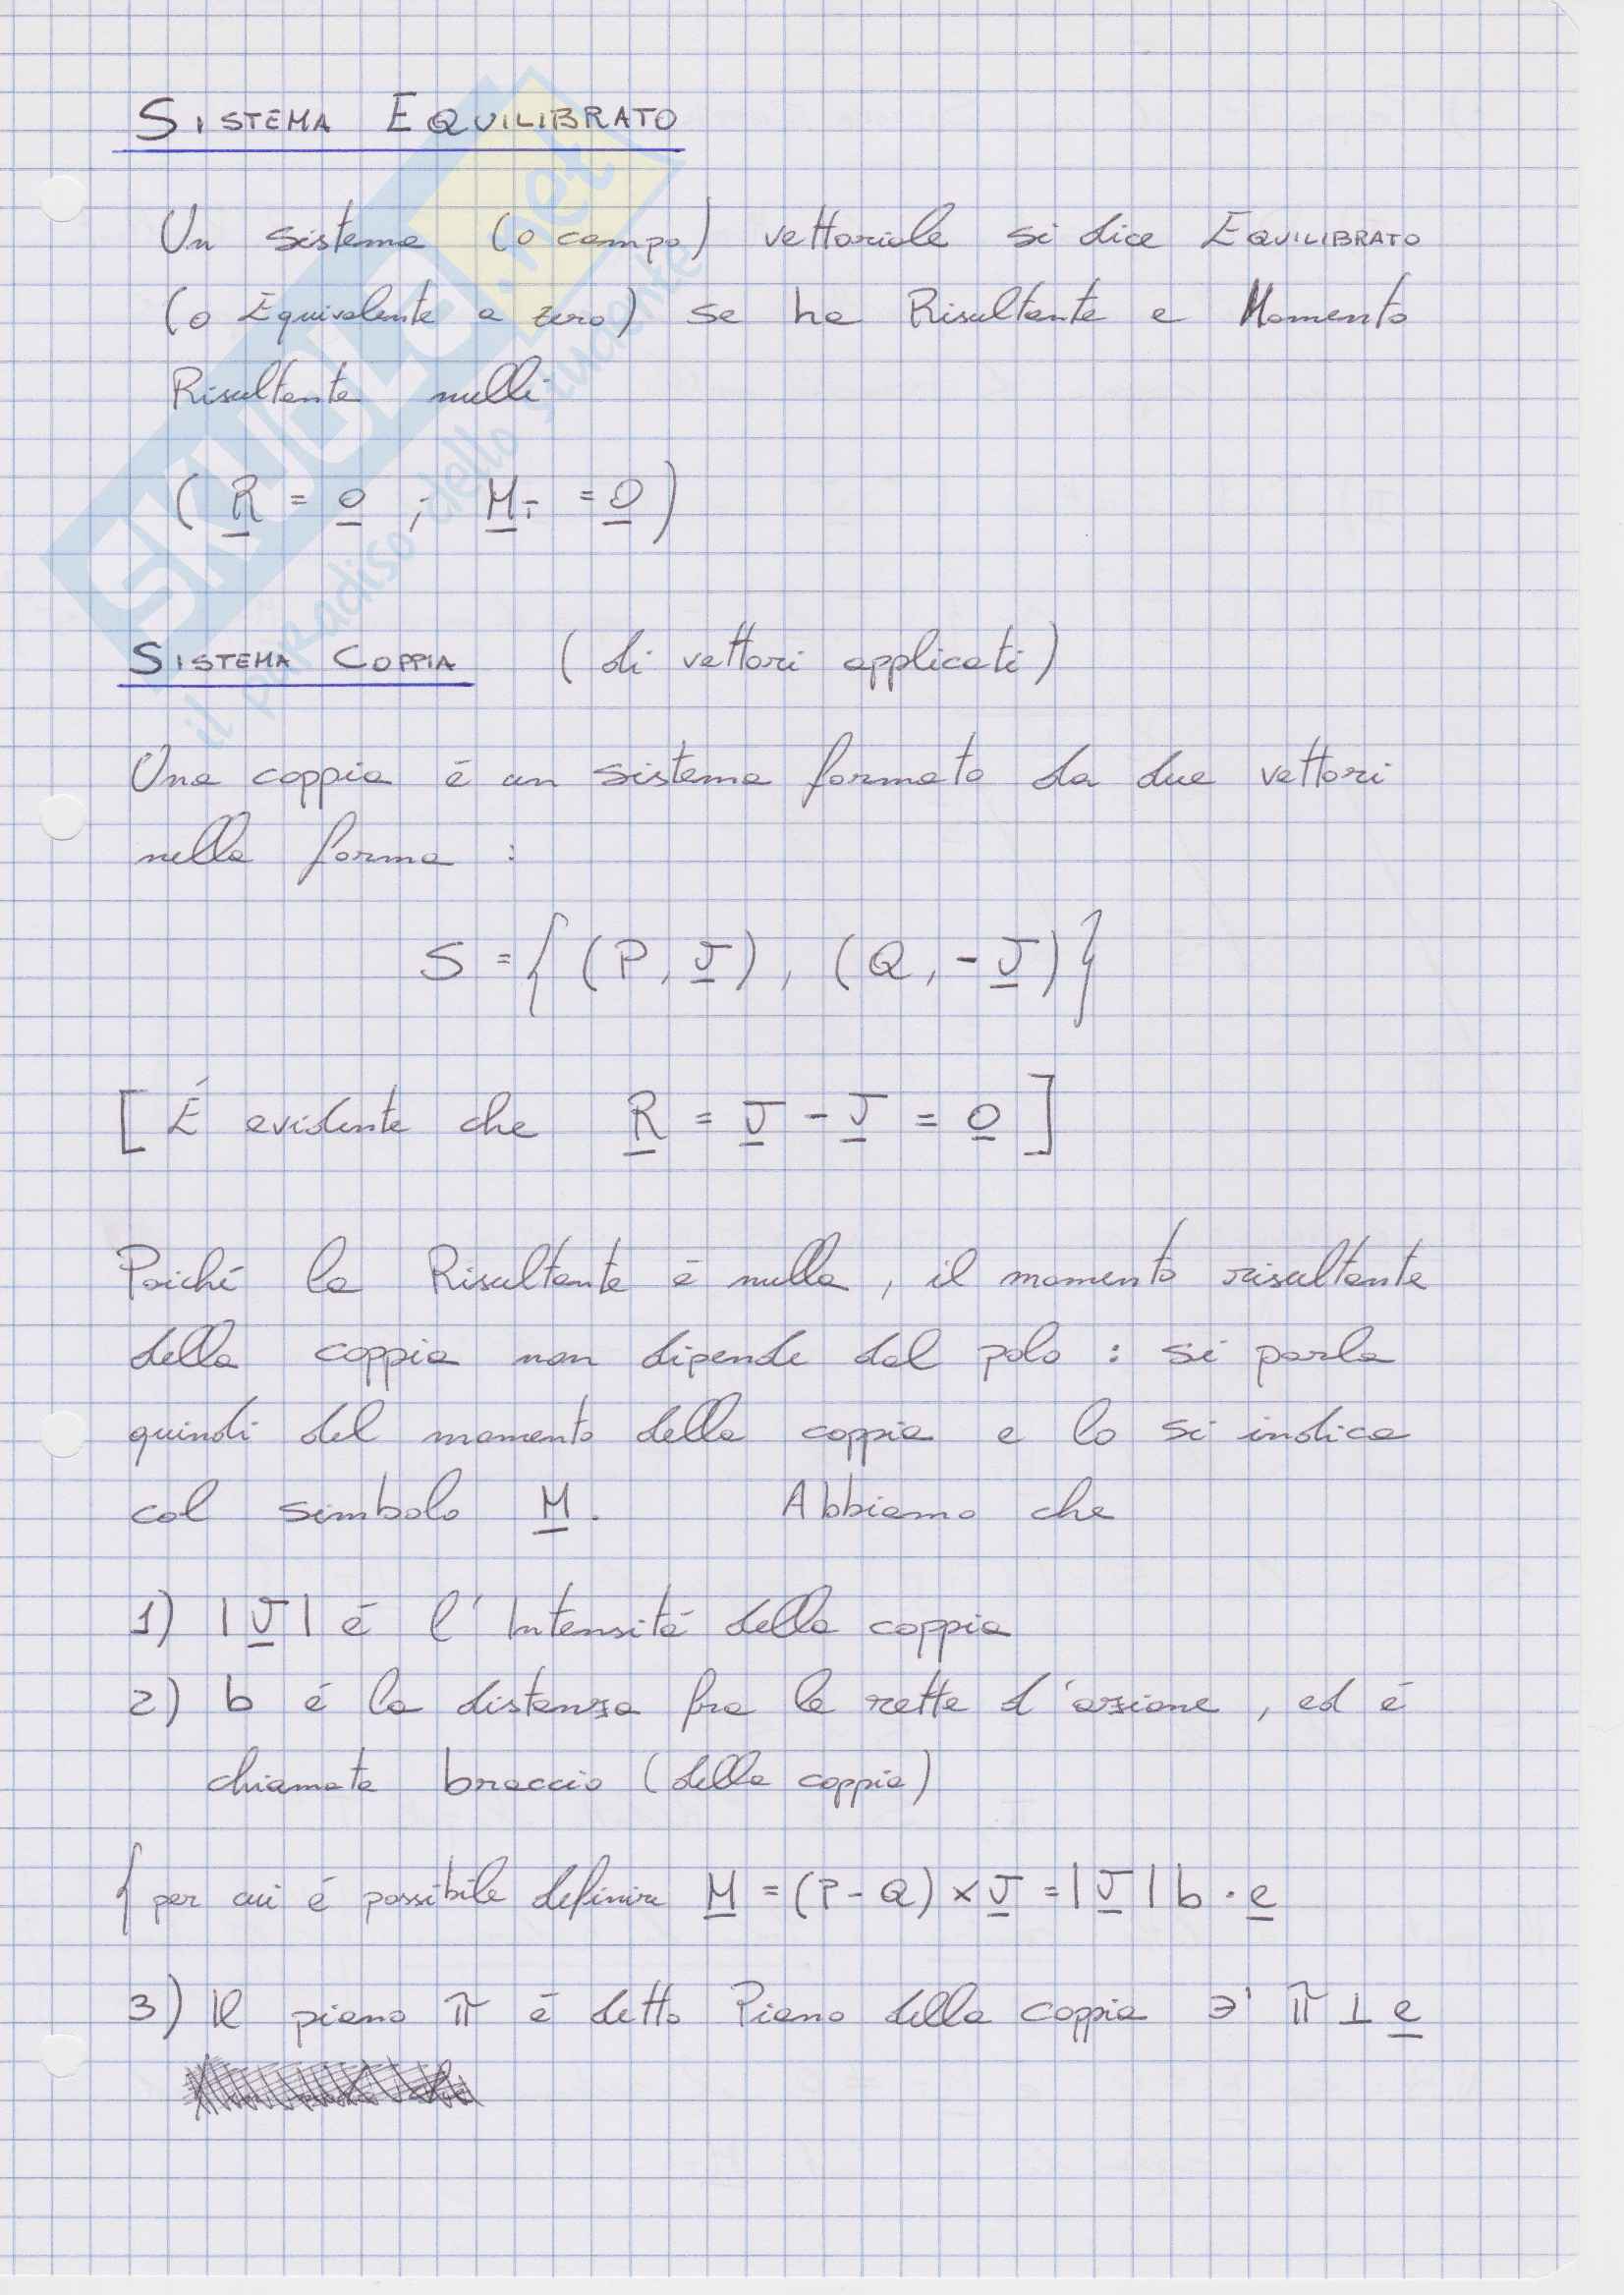 SISTEMA EQUILIBRATO
Un sistema (o campo) vettoriale si dice EQUILIBRATO
(o Equivalente a zero) se ha Risultante e Momento
Risultante nulli
( R = 0 ; M_T = 0 )
SISTEMA COPPIA (di vettori applicati)
Una coppia é un sistema formato da due vettori
nella forma :
S = { (P, v) , (Q, -v) }
[ É evidente che R = v - v = 0 ]
Poiché la Risultante é nulla, il momento risultante
della coppia non dipende dal polo : si parla
quindi del momento della coppia e lo si indica
col simbolo M. Abbiamo che
1) |v| é l'Intensitá della coppia
2) b é la distanza fra le rette d'azione, ed é
chiamata braccio (della coppia)
{ per cui é possibile definire M = (P - Q) × v = |v| b · e
3) Il piano π é detto Piano della coppia ∋' π ⊥ e
SKUOLA.net
il paradiso dello studente